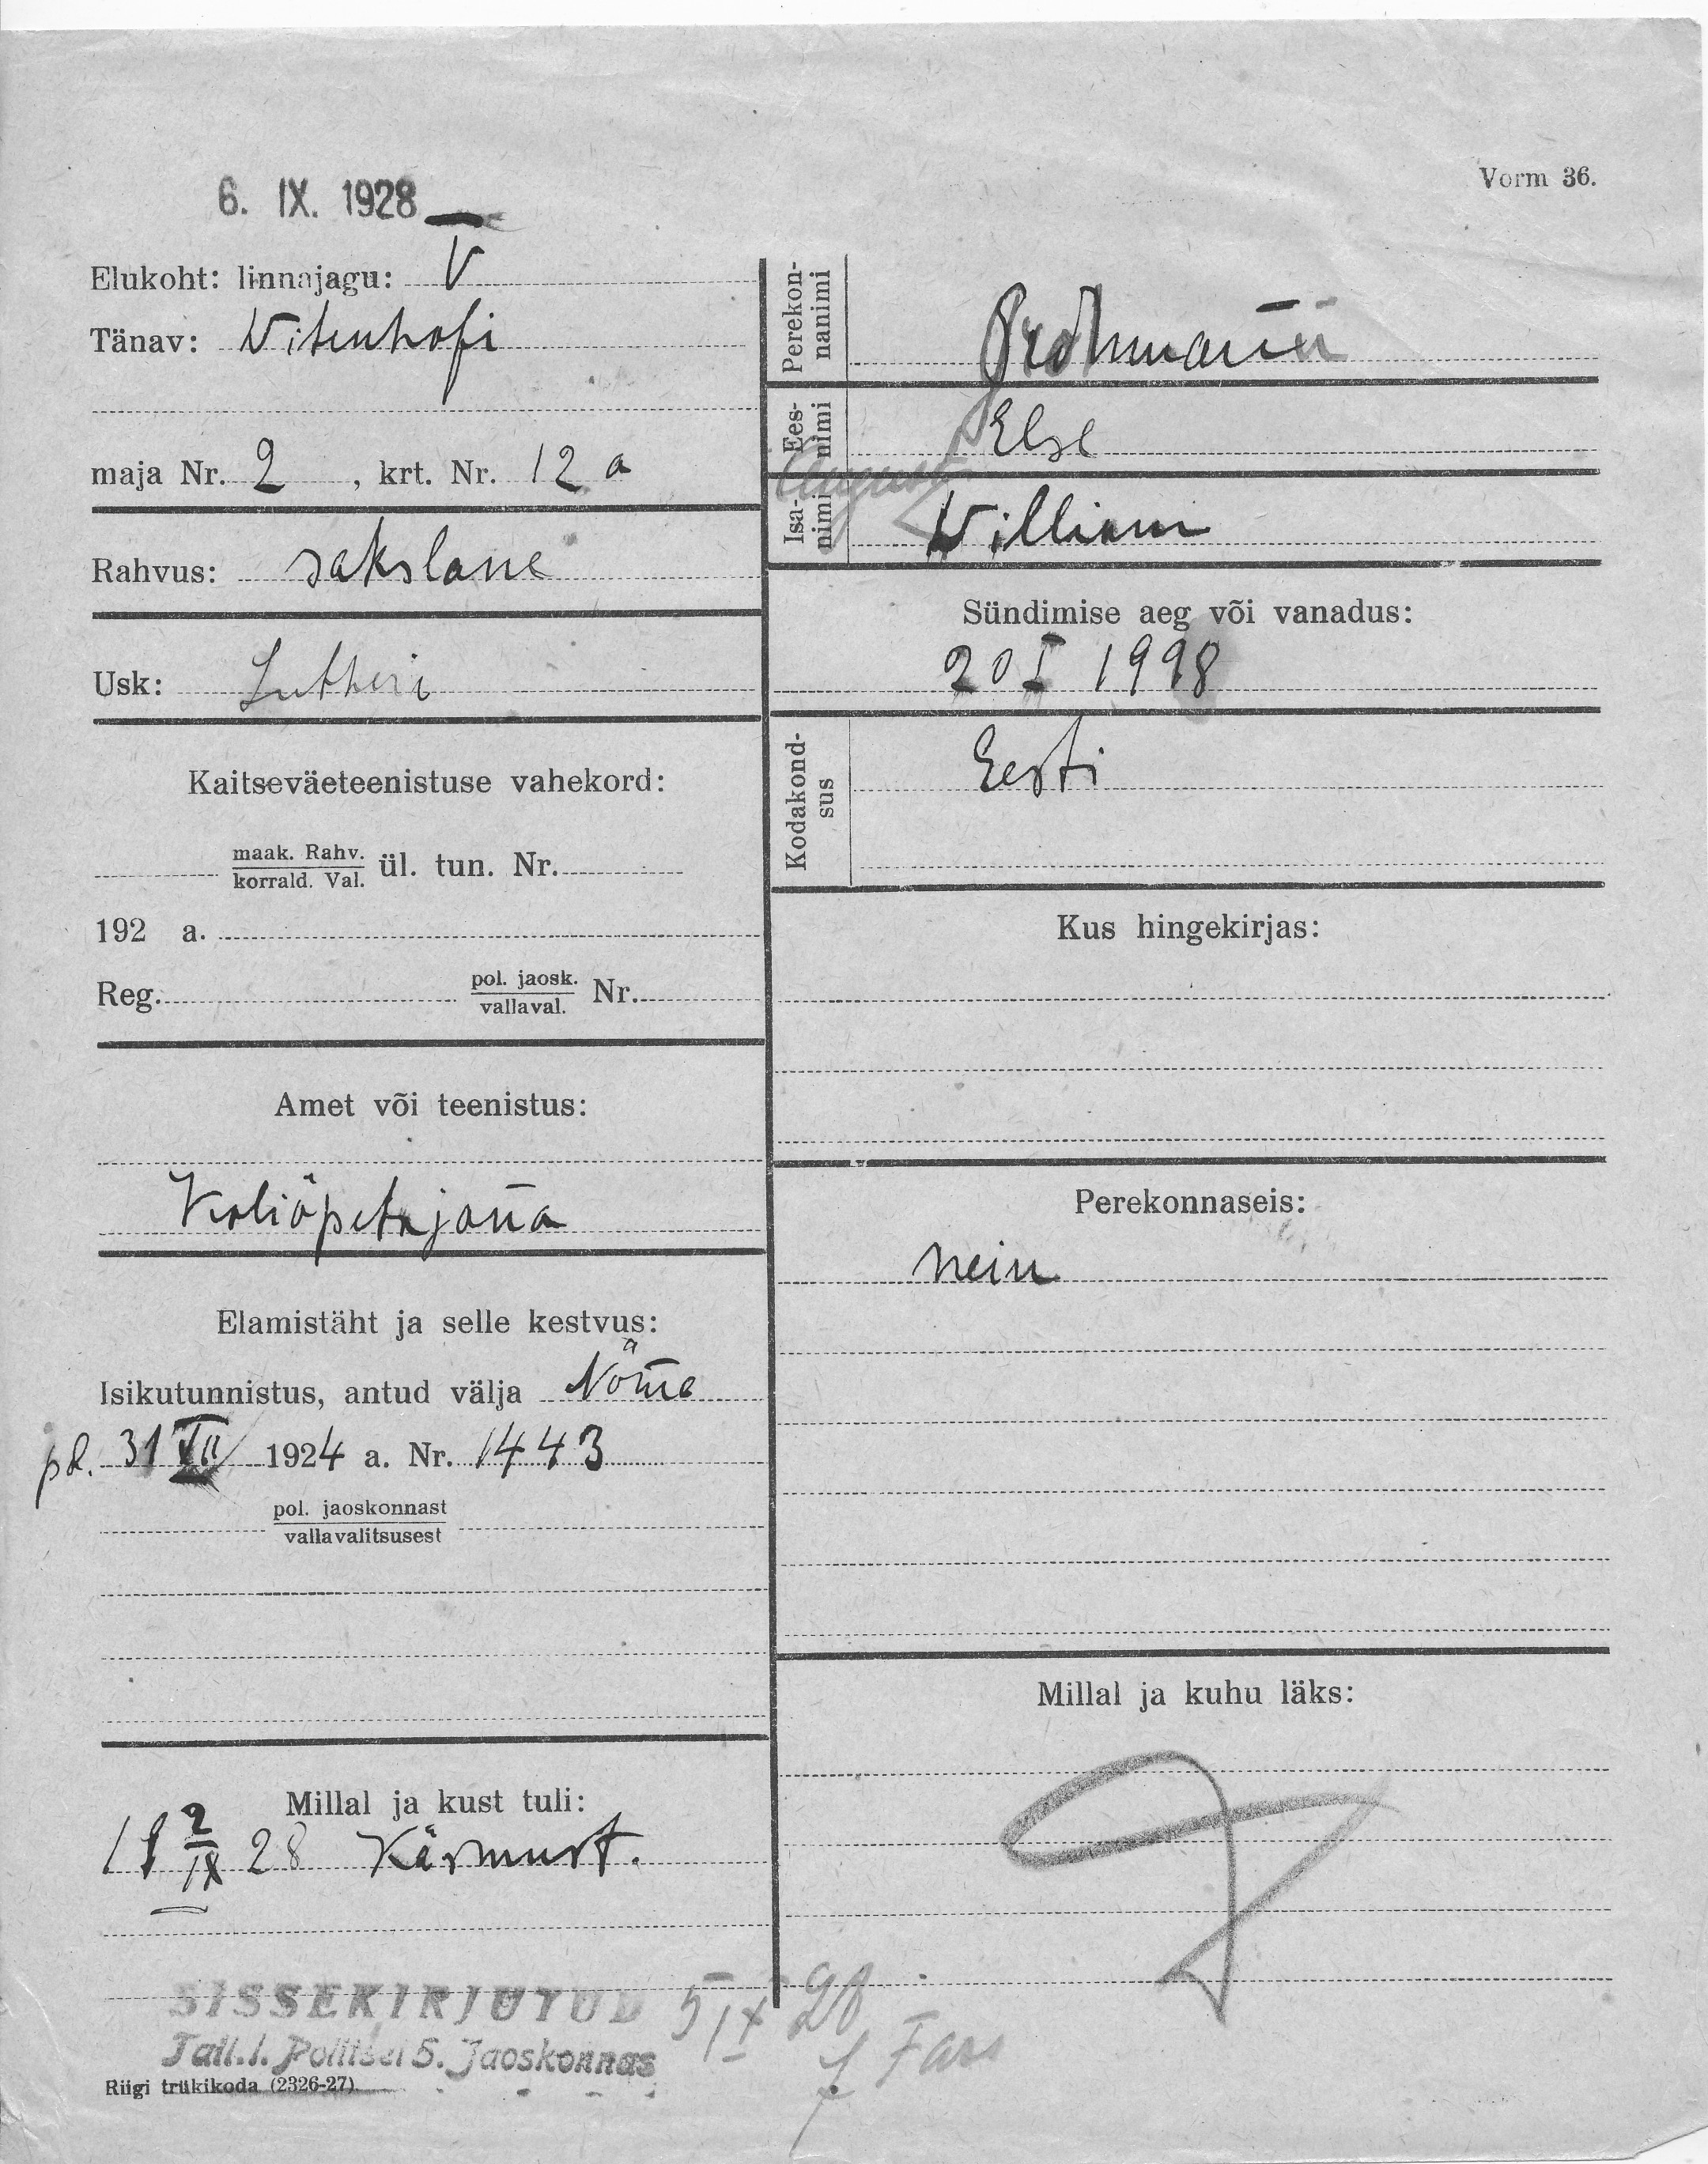 Vorm 36.
6. IX. 1928
Elukoht: linnajagu: V
Tänav: Witenhofi
maja Nr. 2, krt. Nr. 12 a
Rahvus: sakslane
Usk: Lutheri
Kaitseväeteenistuse vahekord:
maak. Rahv.
korrald. Val. ül. tun. Nr.
192 a.
Reg. pol. jaosk.
vallaval. Nr.
Amet või teenistus:
Koliõpetajana
Elamistäht ja selle kestvus:
Isikutunnistus, antud välja Nõme
31 VII 1924 a. Nr. 1443
pol. jaoskonnast
vallavalitsusest
Millal ja kust tuli:
2
IX 28 Käsmust.
SISSEKIRJUTUD 5 IX 28
Tall. l. Politsei 5. Jaoskonnas
Riigi trükikoda (2326-27).
Perekon-
nanimi
Ees-
nimi Else
August
Isa-
nimi William
Sündimise aeg või vanadus:
20 I 1998
Kodakond-
sus Eesti
Kus hingekirjas:
Perekonnaseis:
nein
Millal ja kuhu läks: